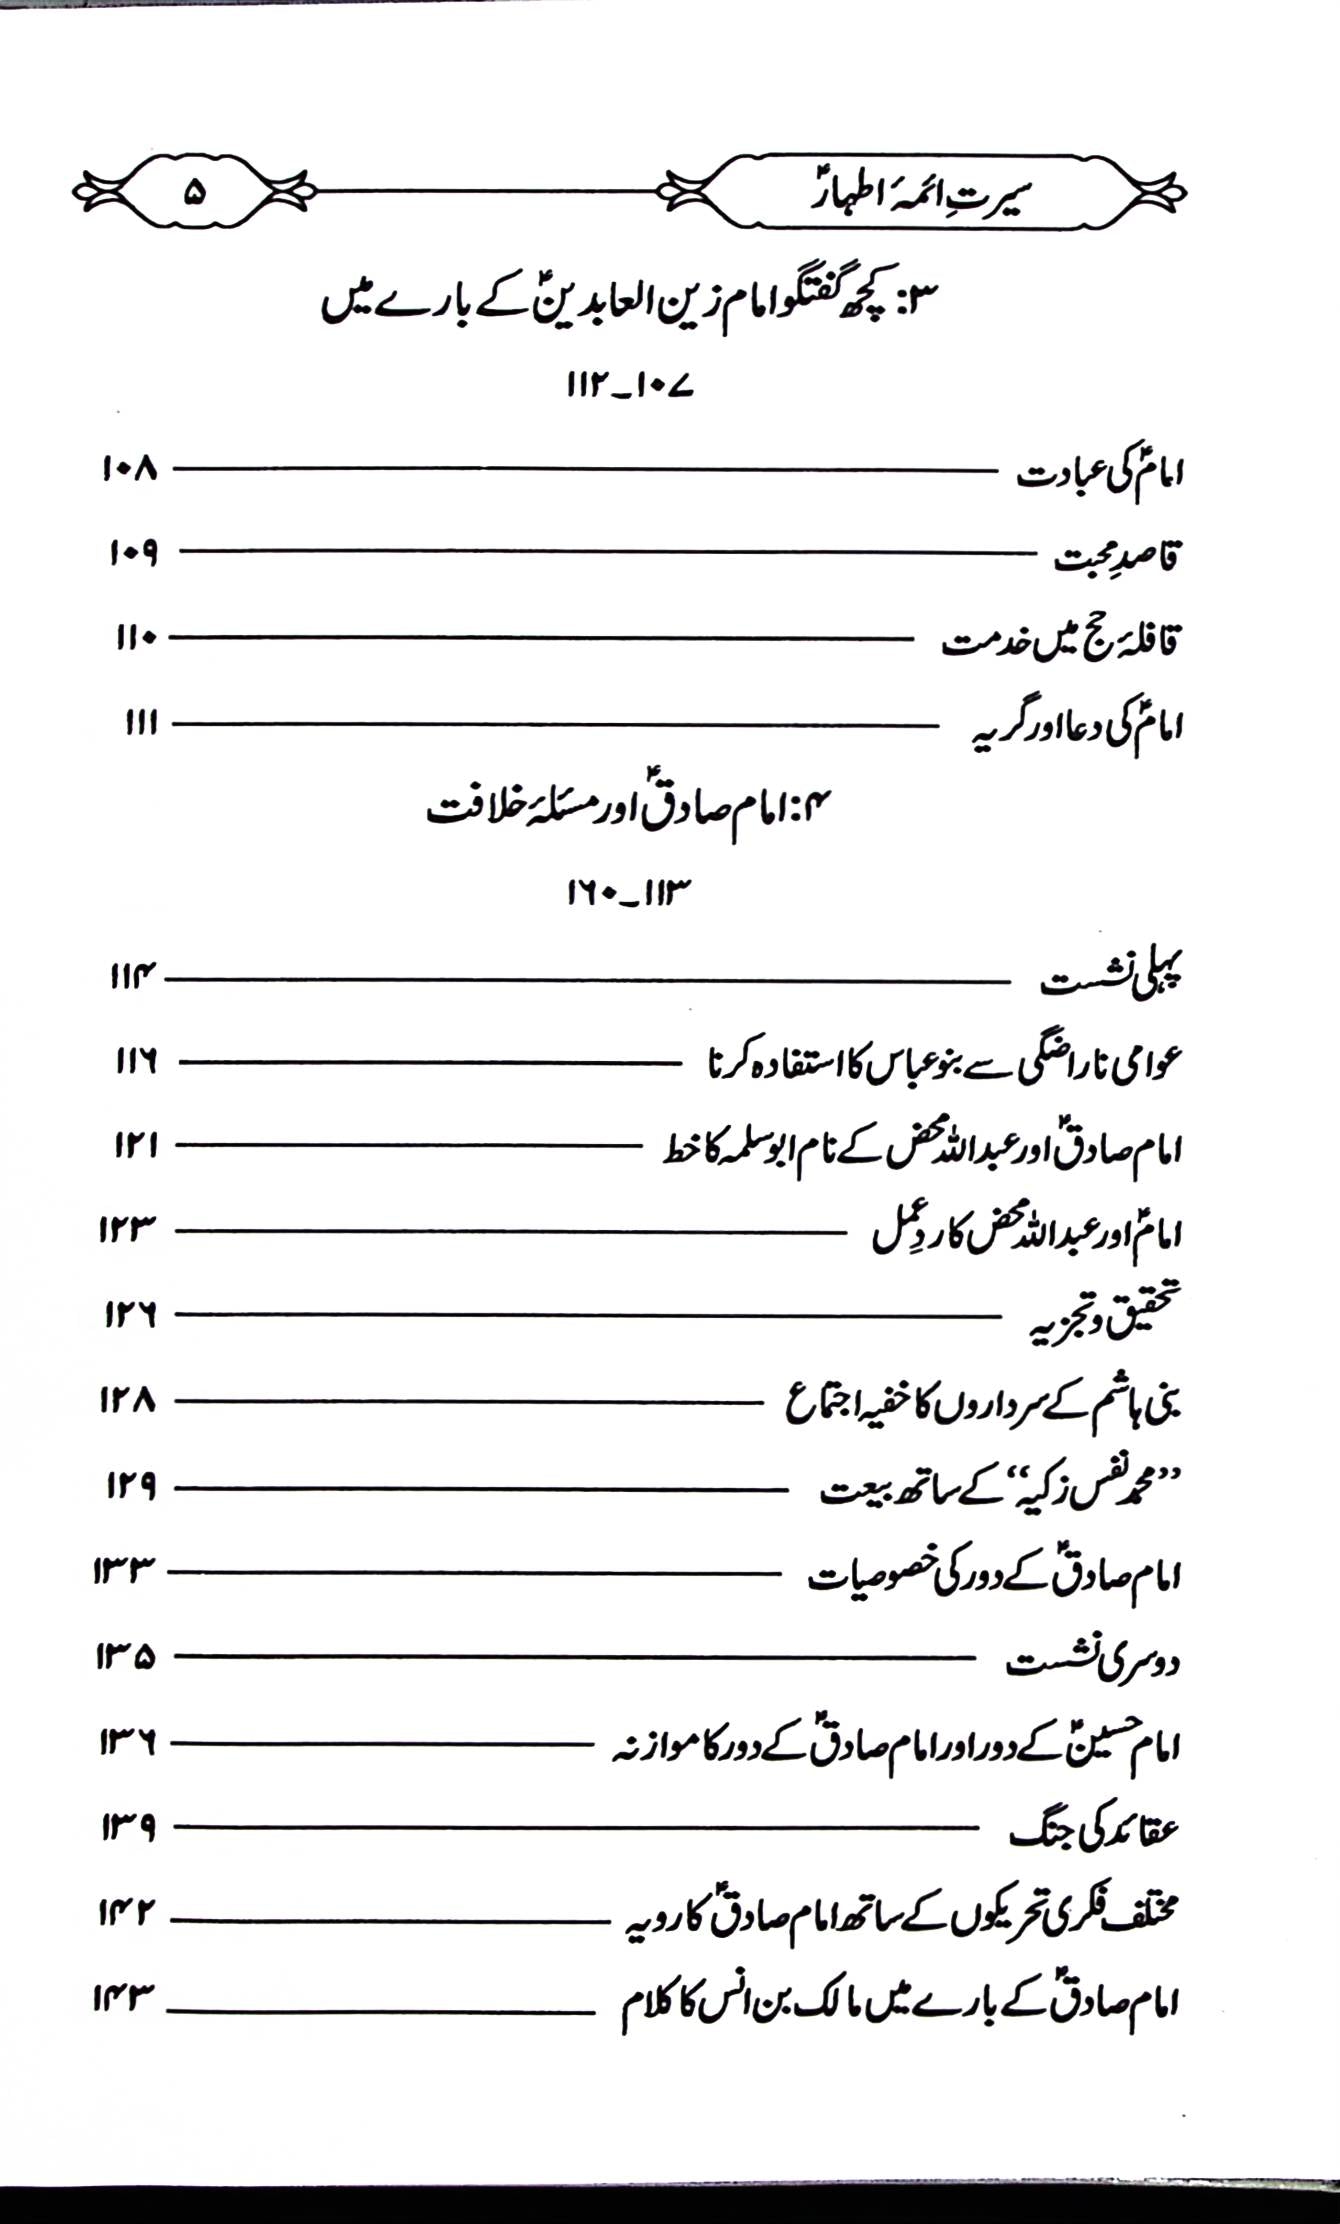 سیرتِ ائمۂ اطہارؑ ۵
۳: کچھ گفتگو امام زین العابدینؑ کے بارے میں
۱۰۷ـ۱۱۲
امامؑ کی عبادت ۱۰۸
قاصدِ محبت ۱۰۹
قافلۂ حج میں خدمت ۱۱۰
امامؑ کی دعا اور گریہ ۱۱۱
۴: امام صادقؑ اور مسئلۂ خلافت
۱۱۳ـ۱۶۰
پہلی نشست ۱۱۴
عوامی ناراضگی سے بنو عباس کا استفادہ کرنا ۱۱۶
امام صادقؑ اور عبداللہ محض کے نام ابوسلمہ کا خط ۱۲۱
امامؑ اور عبداللہ محض کا ردِعمل ۱۲۳
تحقیق و تجزیہ ۱۲۶
بنی ہاشم کے سرداروں کا خفیہ اجتماع ۱۲۸
”محمد نفس زکیہ“ کے ساتھ بیعت ۱۲۹
امام صادقؑ کے دور کی خصوصیات ۱۳۳
دوسری نشست ۱۳۵
امام حسینؑ کے دور اور امام صادقؑ کے دور کا موازنہ ۱۳۶
عقائد کی جنگ ۱۳۹
مختلف فکری تحریکوں کے ساتھ امام صادقؑ کا رویہ ۱۴۲
امام صادقؑ کے بارے میں مالک بن انس کا کلام ۱۴۳